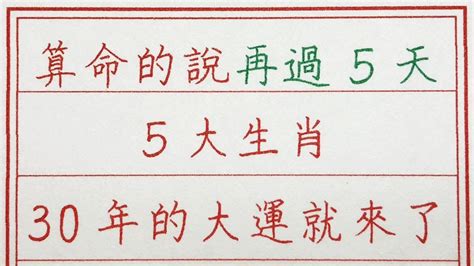 算命的說再過5天
5大生肖
30年的大運就來了